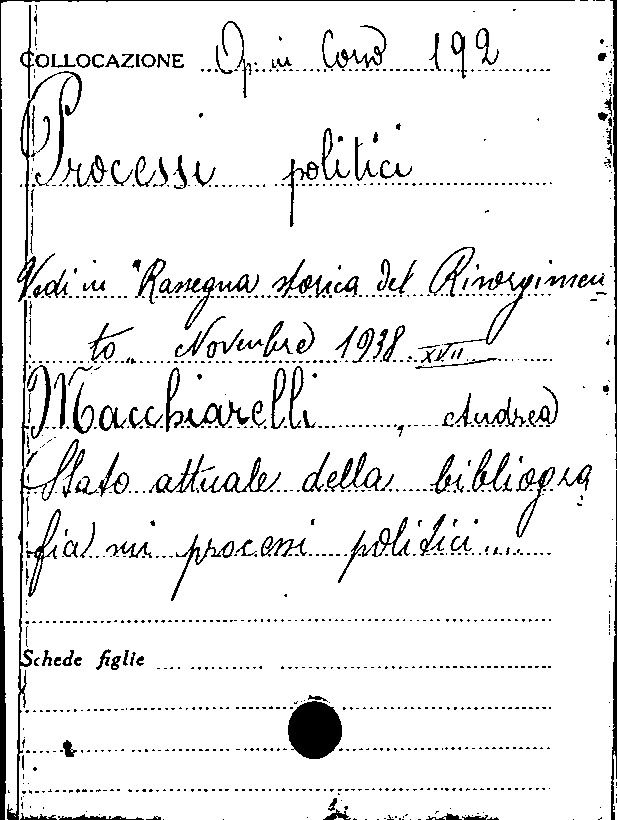 COLLOCAZIONE Op. in Corso 192
Processi politici
Vedi in "Rassegna storica del Risorgimen
to„ Novembre 1938. XVII
Macchiarelli, Andrea
Stato attuale della bibliogra
fia sui processi politici....
Schede figlie